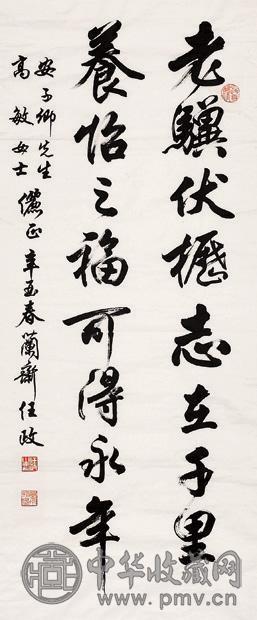 老驥伏櫪志在千里
養怡之福可得永年
子卿先生
高敏女士
儷正辛酉春蘭齋任政
中华收藏网
www.pmv.cn